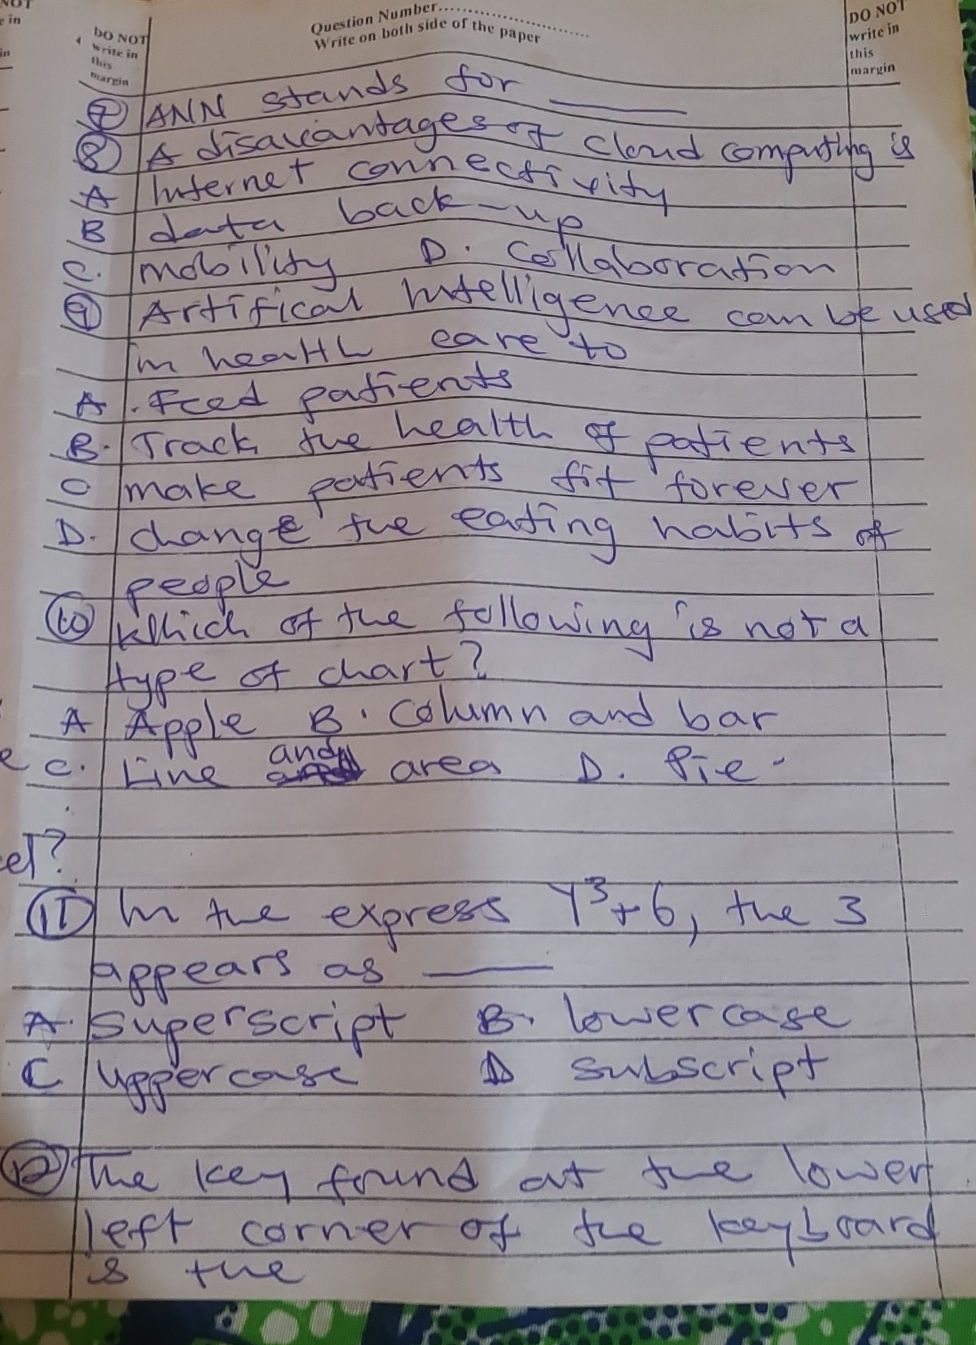 NOT
e in
in
DO NOT
write in
this
margin
Question Number..............................
Write on both side of the paper
DO NOT
write in
this
margin
⑦ ANN stands for ______
⑧ A disavantages of cloud computing is
A Internet connectivity
B data back-up
C. mobility D. Collaboration
⑨ Artifical Intelligence can be used
in health care to
A. Feed patients
B. Track the health of patients
C make patients fit forever
D. change the eating habits of
people
⑩ Which of the following is not a
type of chart?
A Apple B. Column and bar
e
C. Line and area D. Pie
el?
⑪ In the express Y³+6, the 3
appears as ______
A. Superscript B. lowercase
C uppercase D subscript
⑫ The key found at the lower
left corner of the keyboard
is the